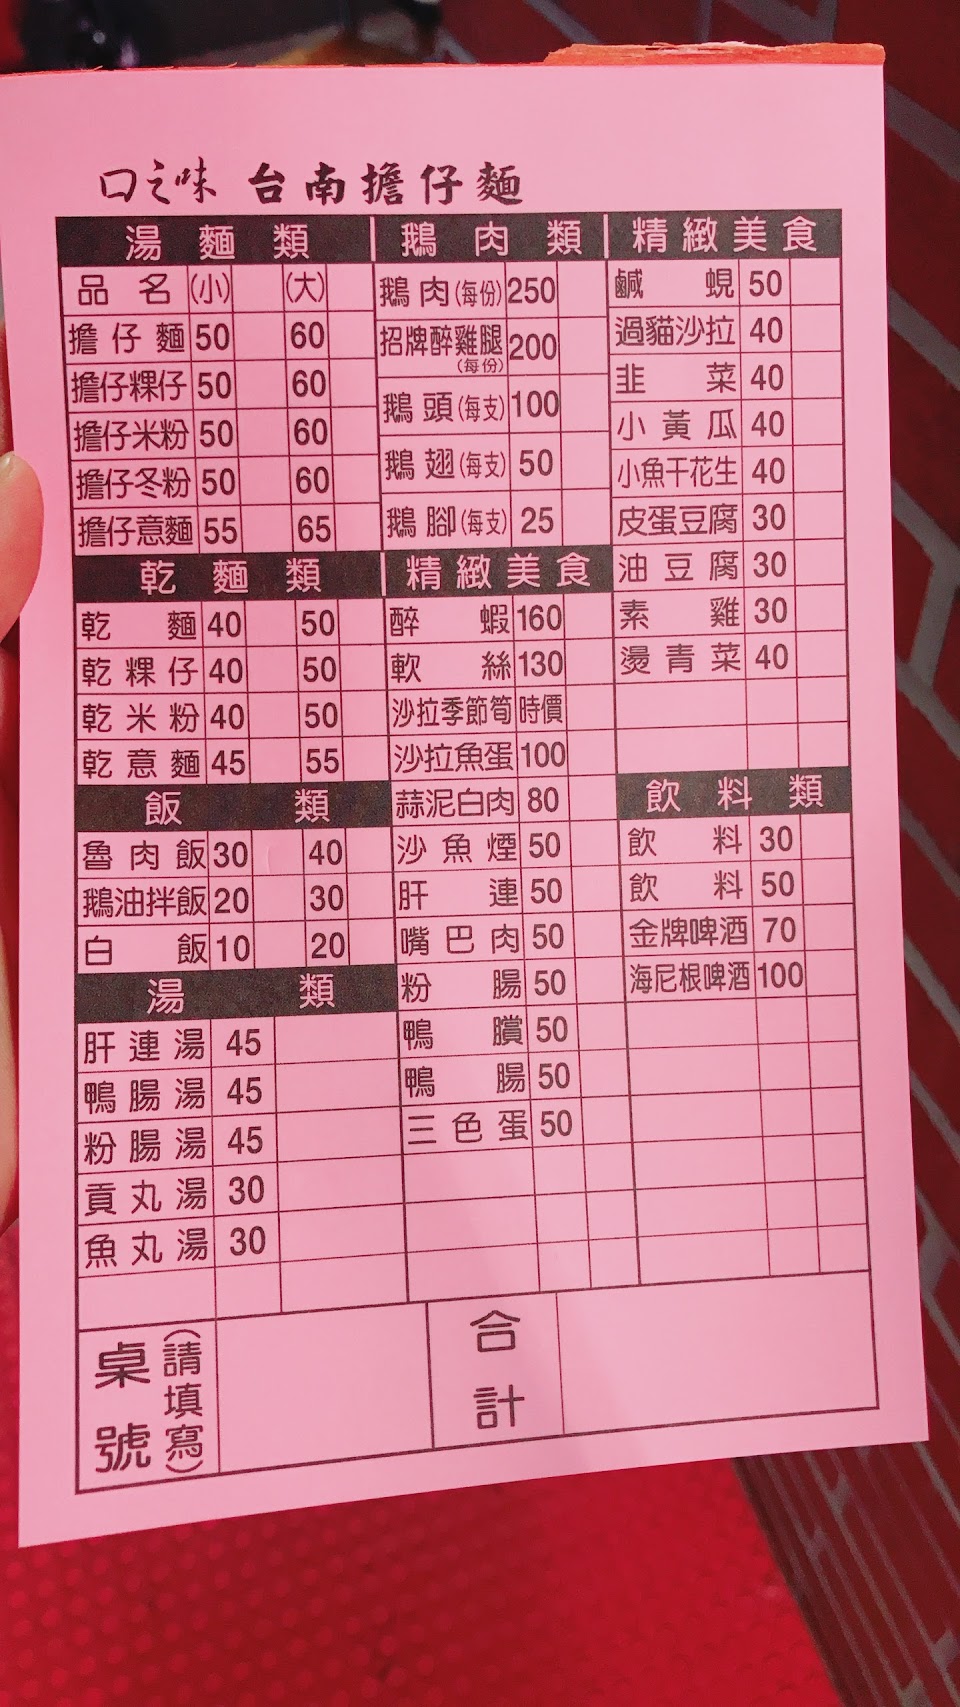 口之味 台南擔仔麵
湯麵類
品名 (小) (大)
擔仔麵 50 60
擔仔粿仔 50 60
擔仔米粉 50 60
擔仔冬粉 50 60
擔仔意麵 55 65
乾麵類
乾麵 40 50
乾粿仔 40 50
乾米粉 40 50
乾意麵 45 55
飯類
魯肉飯 30 40
鵝油拌飯 20 30
白飯 10 20
湯類
肝連湯 45
鴨腸湯 45
粉腸湯 45
貢丸湯 30
魚丸湯 30
鵝肉類
鵝肉(每份) 250
招牌醉雞腿(每份) 200
鵝頭(每支) 100
鵝翅(每支) 50
鵝腳(每支) 25
精緻美食
醉蝦 160
軟絲 130
沙拉季節筍 時價
沙拉魚蛋 100
蒜泥白肉 80
沙魚煙 50
肝連 50
嘴巴肉 50
粉腸 50
鴨臏 50
鴨腸 50
三色蛋 50
精緻美食
鹹蜆 50
過貓沙拉 40
韭菜 40
小黃瓜 40
小魚干花生 40
皮蛋豆腐 30
油豆腐 30
素雞 30
燙青菜 40
飲料類
飲料 30
飲料 50
金牌啤酒 70
海尼根啤酒 100
桌號(請填寫)
合計